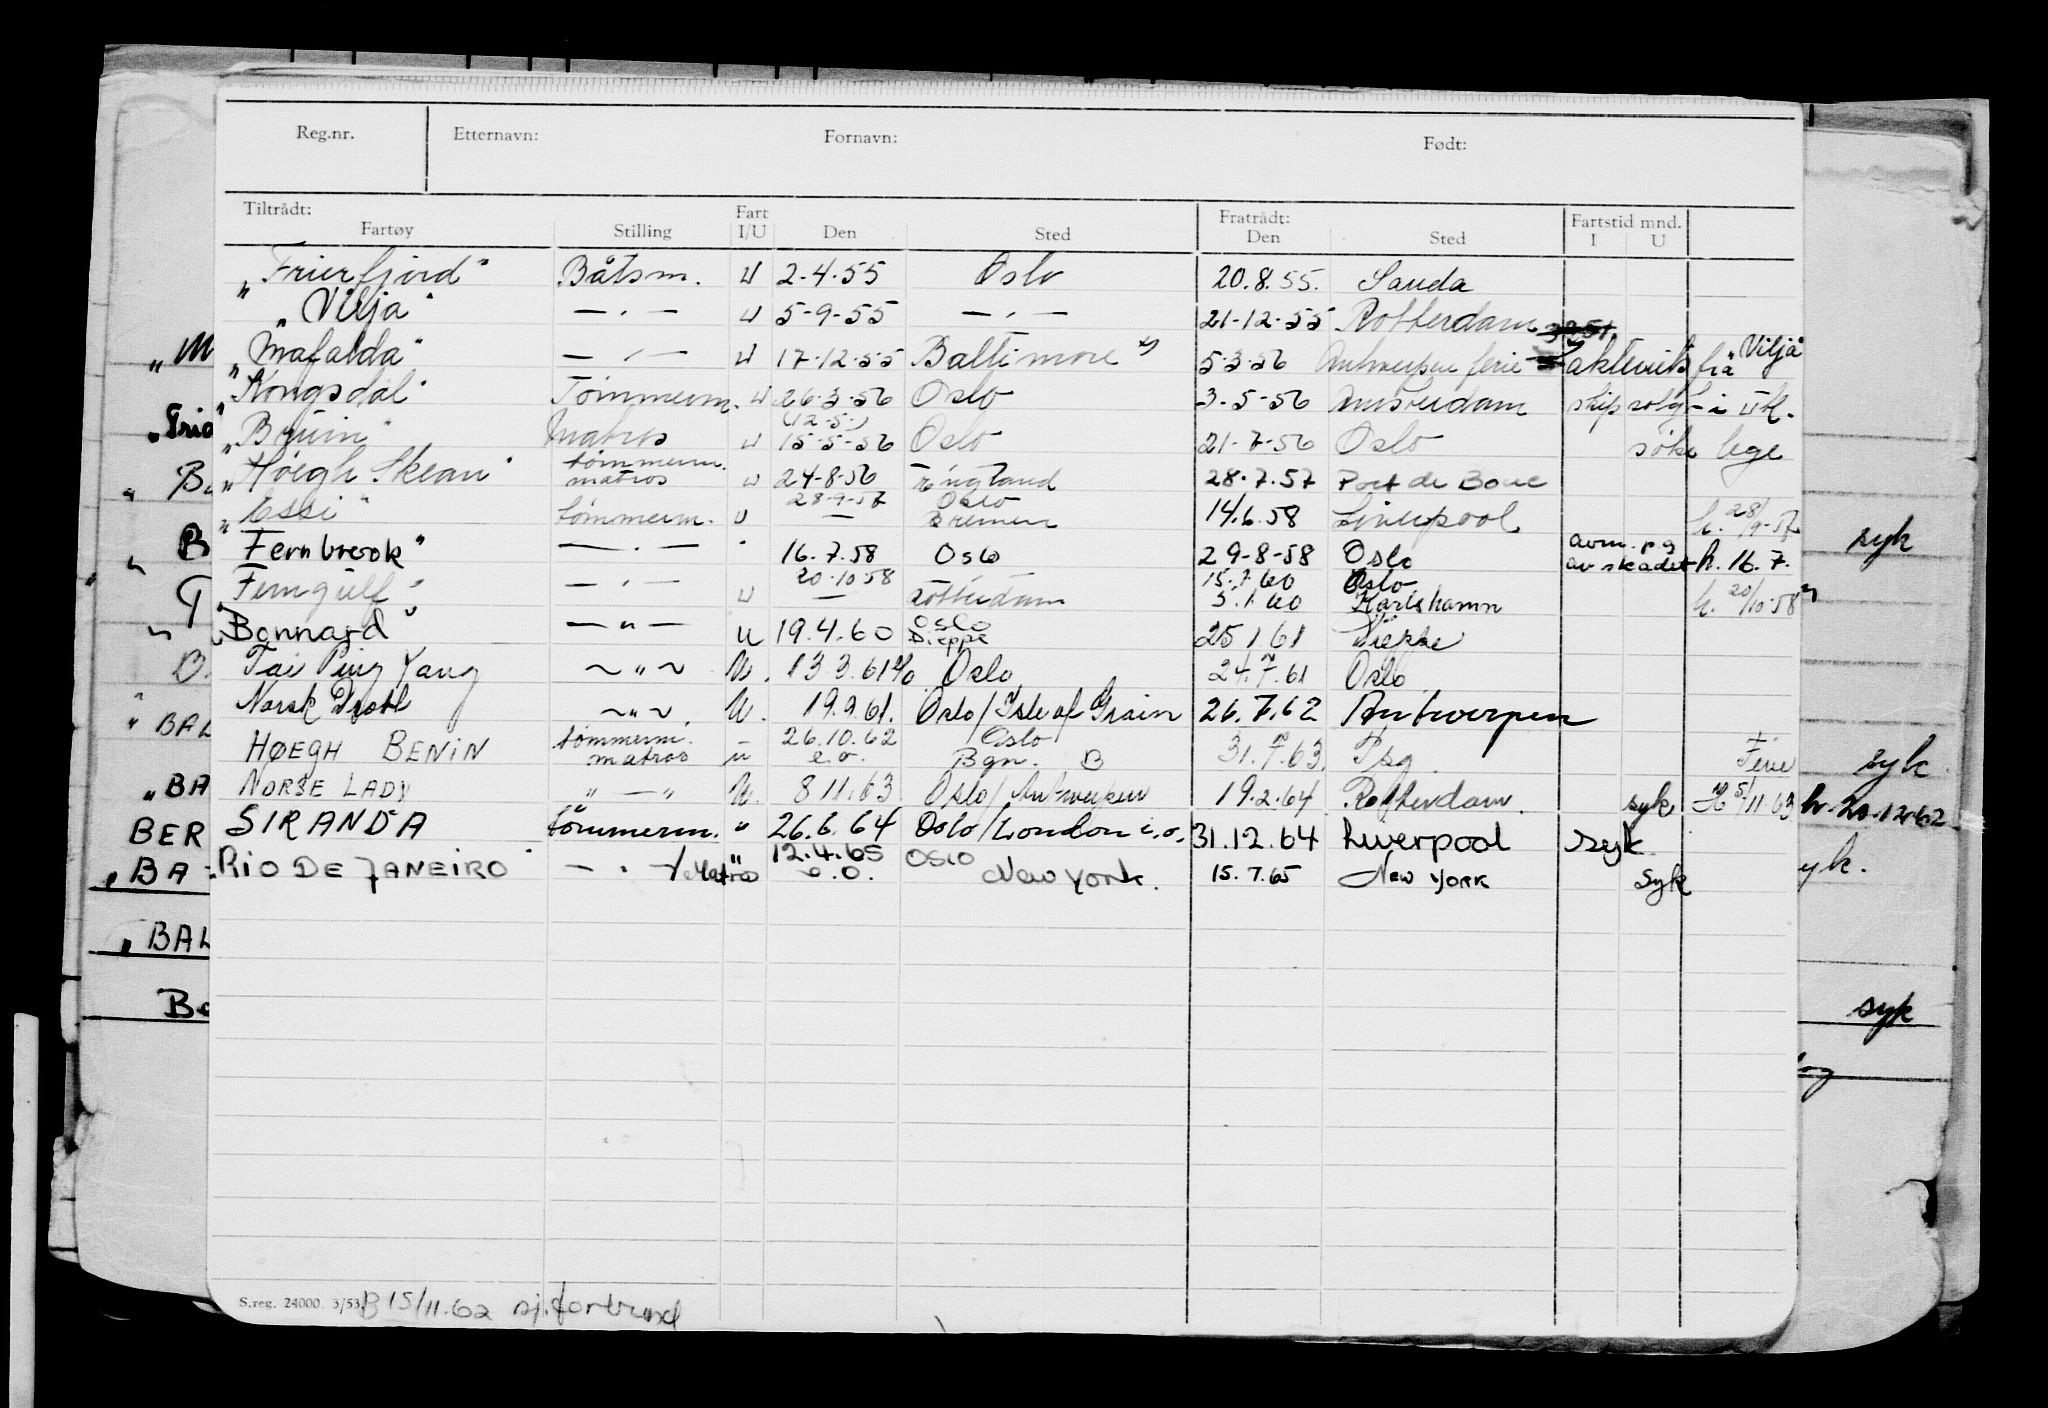 Reg.nr. Etternavn: Fornavn: Født:
Tiltrådt: Fartøy Stilling Fart I/U Den Sted Fratrådt: Den Sted Fartstid mnd. I U
"Frierfjord" Båtsm. U 2-4-55 Oslo 20.8.55. Sauda
"Vilja" — . — U 5-9-55 — . — 21-12-55 Rotterdam
"Mafalda" — . — U 17-12-55 Baltimore x) 5-3-56 Antwerpen ferie x) aktevits fra "Vilja"
"Kongsdal" Tømmerm. U 26-3-56 Oslo 3-5-56 Amsterdam skip solgt i utl.
"Bruin" Matros U (12-5-) 15-5-56 Oslo 21-7-56 Oslo søke lege
"Høegh Skean" tømmerm. matros U 24-8-56 England 28.7.57 Port de Bouc
"Essi" tømmerm. U 28-9-57 — Oslo Bremen 14/6.58 Liverpool h. 28/9-57
"Fernbrook" — . — " 16.7.58 Oslo 29-8-58 Oslo avm. p.g av skadet h. 16.7.
"Ferngulf" — . — U 20-10-58 — Rotterdam 15.1.60 Oslo 5.1.60 Karlshamn h. 20/10-58
"Bonnard" — " — U 19.4.60 Oslo Dieppe 25 1 61 Dieppe
Tai Ping Yang ~ " ~ U. 13.3.61 Oslo 24.7.61 Oslo
Norsk Drott ~ " ~ U. 19.9.61. Oslo/Isle of Grain 26.7.62 Antwerpen
HØEGH BENIN tømmerm. matros U 26.10.62 e.o. Oslo Bgn. B 31.7.63. Psg. Ferie
NORSE LADY " — " U. 8 11.63 Oslo/Antwerpen 19.2.64 Rotterdam. syk H 5/11.63
SIRANDA tømmerm. " 26.6.64 Oslo/London e.o. 31.12.64 Liverpool syk
RIO DE JANEIRO — . — / Matros " 12.4.65 e.o. OSLO New York. 15.7.65 NEW YORK Syk
S.reg. 24000. 3/53. B 15/11.62 sj.forbund
"M
"Trio
B
G
"BAL
"BA
BER
"BA
"BAL
Be
syk
syk
h. 20.12.62
yk.
syk
og